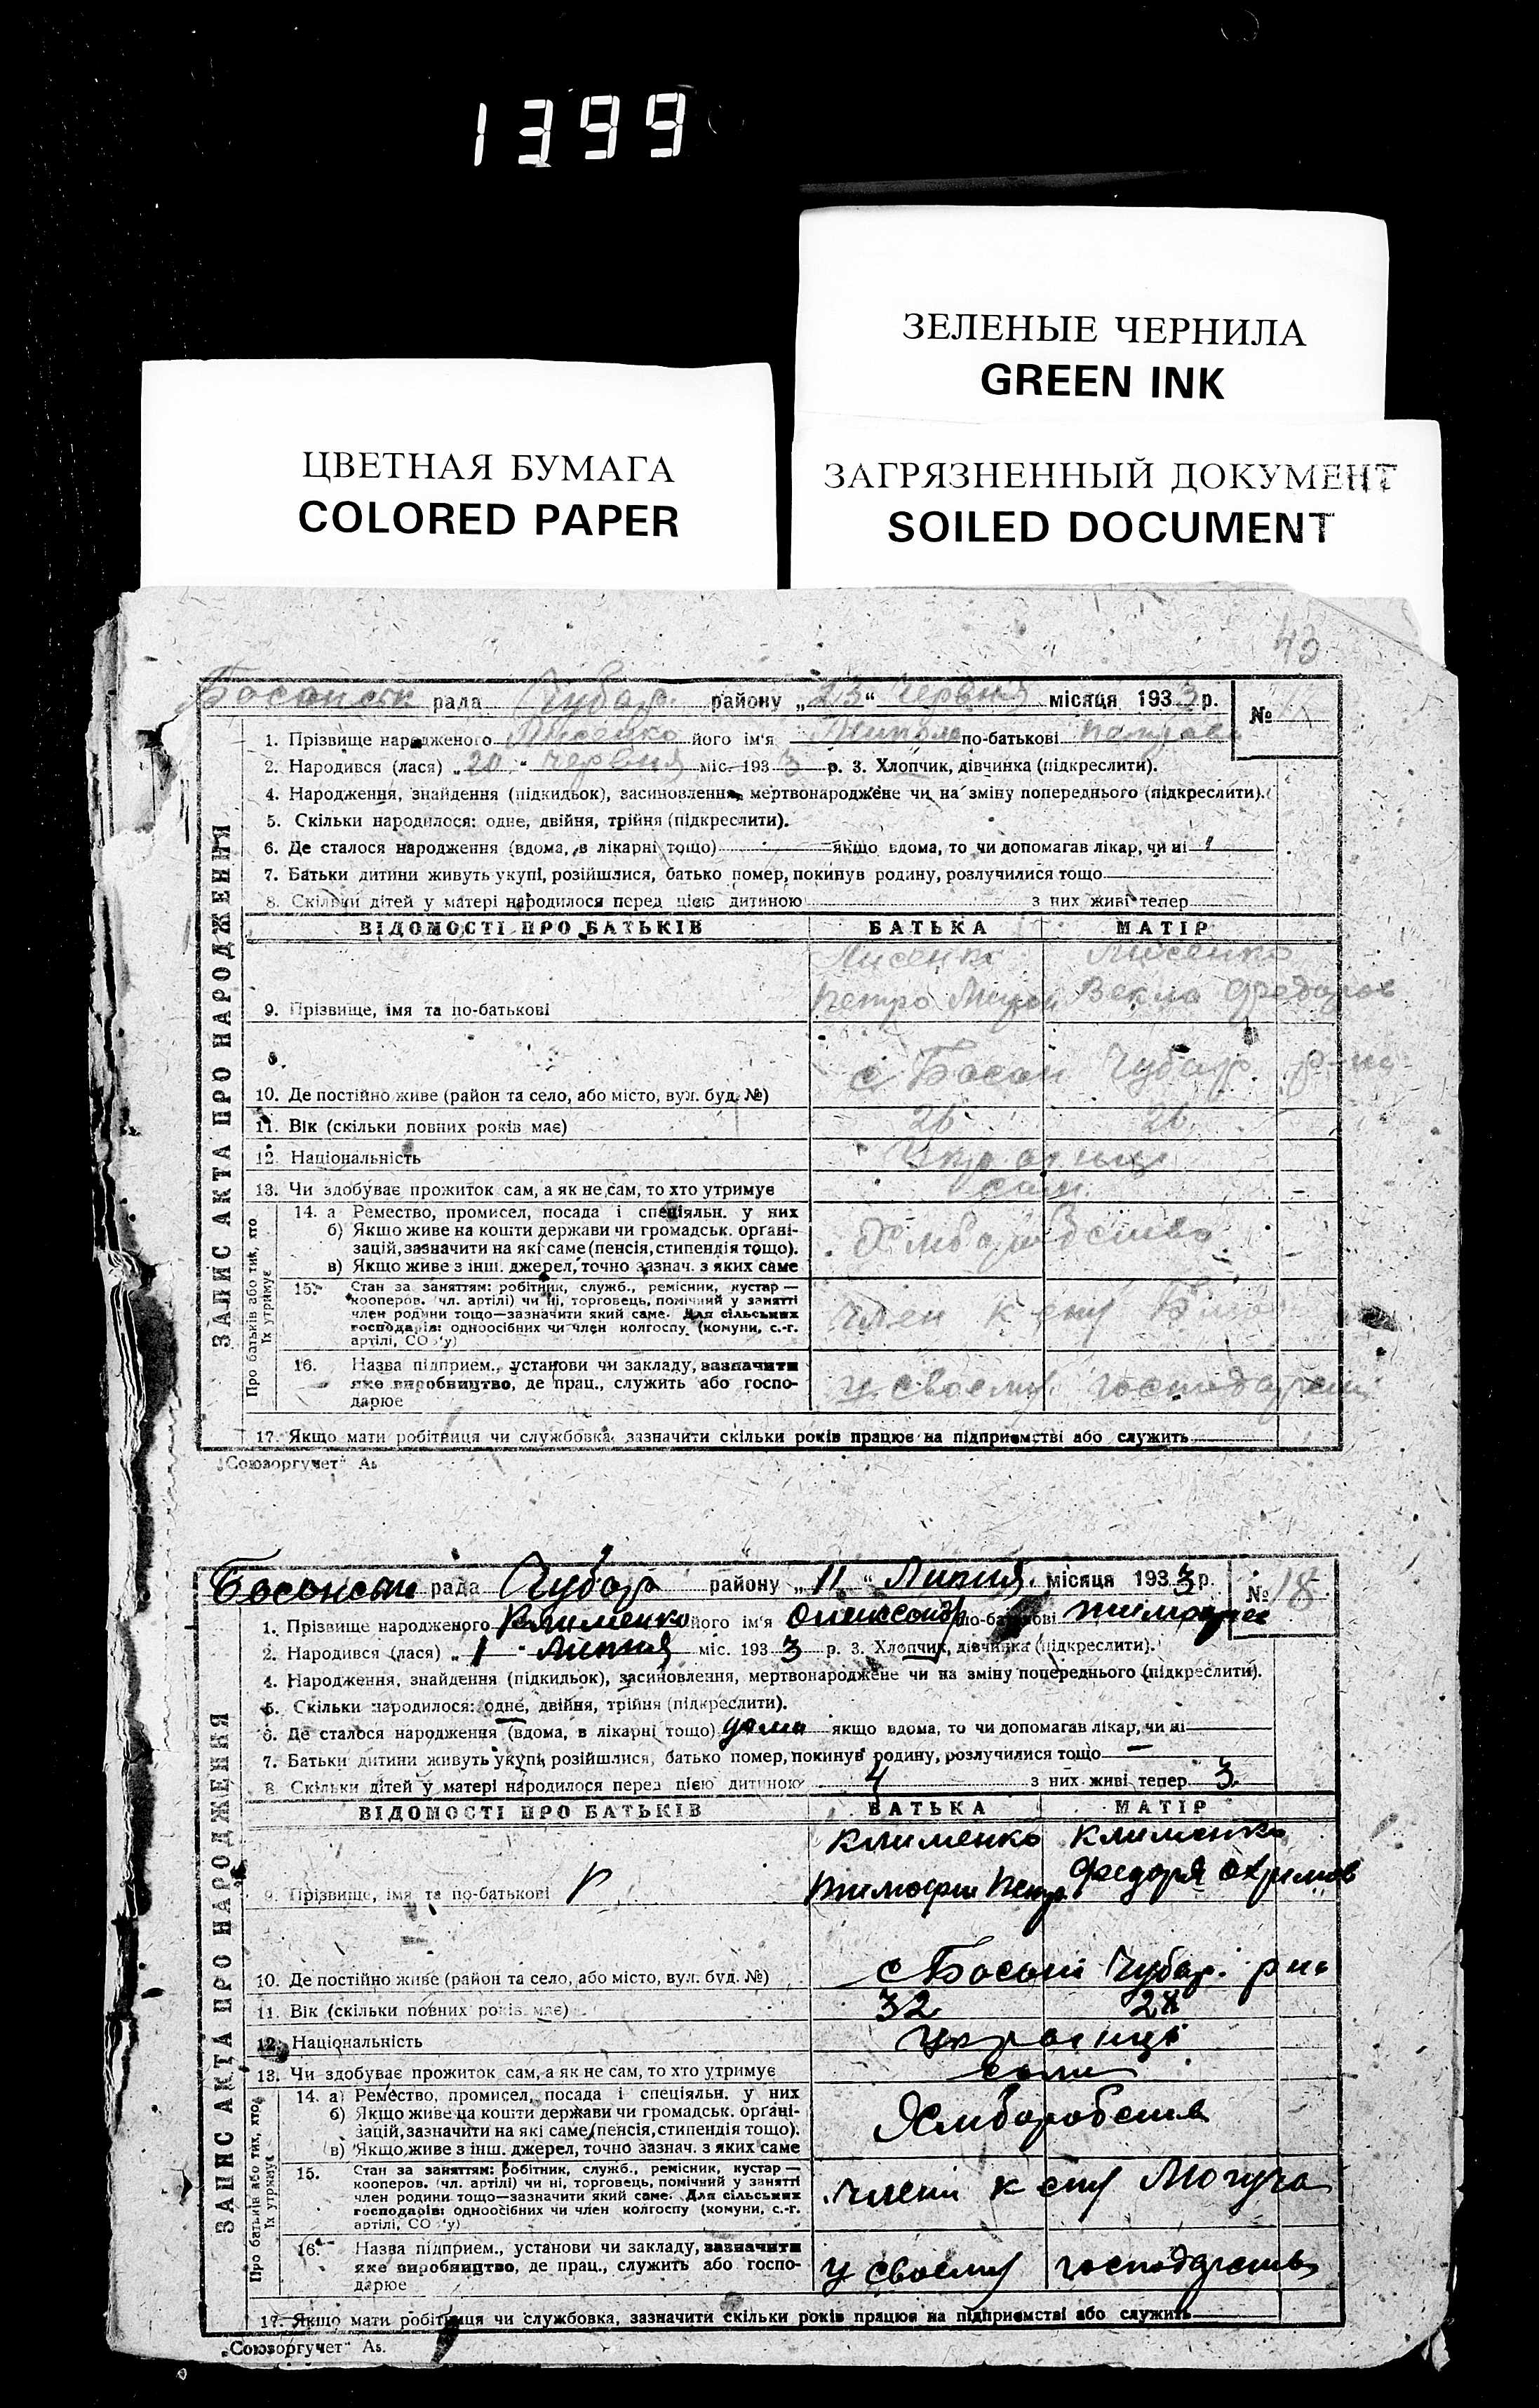 1399
ЗЕЛЕНЫЕ ЧЕРНИЛА
GREEN INK
ЦВЕТНАЯ БУМАГА
COLORED PAPER
ЗАГРЯЗНЕННЫЙ ДОКУМЕНТ
SOILED DOCUMENT
43
Басанськ рада Чубар. району „23“ Червня місяця 1933 р. №
1. Прізвище народженого Лисенко його ім'я по-батькові
2. Народився (лася) „20“ червня міс. 1933 р. 3. Хлопчик, дівчинка (підкреслити).
4. Народження, знайдення (підкидьок), засиновлення, мертвонароджене чи на зміну попереднього (підкреслити).
5. Скільки народилося: одне, двійня, трійня (підкреслити).
6. Де сталося народження (вдома, в лікарні тощо) якщо вдома, то чи допомагав лікар, чи ні
7. Батьки дитини живуть укупі, розійшлися, батько помер, покинув родину, розлучилися тощо
8. Скільки дітей у матері народилося перед цією дитиною з них живі тепер
ЗАПИС АКТА ПРО НАРОДЖЕННЯ
ВІДОМОСТІ ПРО БАТЬКІВ БАТЬКА МАТІР
Лисенко Лисенко
9. Прізвище, імя та по-батькові Петро Векла Федоров
10. Де постійно живе (район та село, або місто, вул. буд. №) с Басан Чубар. р-на
11. Вік (скільки повних років має) 26 26
12. Національність Українці
13. Чи здобуває прожиток сам, а як не сам, то хто утримує сам
Про батьків або тих, хто їх утримує
14. а Ремество, промисел, посада і спеціяльн. у них
б) Якщо живе на кошти держави чи громадськ. органі-
зацій, зазначити на які саме (пенсія, стипендія тощо).
в) Якщо живе з інш. джерел, точно зазнач. з яких саме
15. Стан за заняттям: робітник, служб., ремісник, кустар—
кооперов. (чл. артілі) чи ні, торговець, помічний у занятті
член родини тощо—зазначити який саме. Для сільських
господарів: одноосібних чи член колгоспу (комуни, с.-г.
артілі, СОЗ'у)
член к спу
16. Назва підприєм., установи чи закладу, зазначити
яке виробництво, де прац., служить або госпо-
дарює
у своєму господарстві
17. Якщо мати робітниця чи службовка, зазначити скільки років працює на підприємстві або служить
„Союзоргучет“ Аs
Басанськ рада Чубар району „11“ Липня місяця 1933 р. № 18
1. Прізвище народженого Клименко його ім'я Олександр по-батькові
2. Народився (лася) „1“ Липня міс. 1933 р. 3. Хлопчик, дівчинка (підкреслити).
4. Народження, знайдення (підкидьок), засиновлення, мертвонароджене чи на зміну попереднього (підкреслити).
5. Скільки народилося: одне, двійня, трійня (підкреслити).
6. Де сталося народження (вдома, в лікарні тощо) дома якщо вдома, то чи допомагав лікар, чи ні
7. Батьки дитини живуть укупі, розійшлися, батько помер, покинув родину, розлучилися тощо —
8. Скільки дітей у матері народилося перед цією дитиною 4 з них живі тепер 3
ЗАПИС АКТА ПРО НАРОДЖЕННЯ
ВІДОМОСТІ ПРО БАТЬКІВ БАТЬКА МАТІР
Клименко Клименко
9. Прізвище, імя та по-батькові Тимофій Петр. Федора Охримов
10. Де постійно живе (район та село, або місто, вул. буд. №) с Басані Чубар. р на
11. Вік (скільки повних років має) 32
12. Національність Українці
13. Чи здобуває прожиток сам, а як не сам, то хто утримує сами
Про батьків або тих, хто їх утримує
14. а) Ремество, промисел, посада і спеціяльн. у них
б) Якщо живе на кошти держави чи громадськ. органі-
зацій, зазначити на які саме (пенсія, стипендія тощо).
в) Якщо живе з інш. джерел, точно зазнач. з яких саме
Хліборобства
15. Стан за заняттям: робітник, служб., ремісник, кустар—
кооперов. (чл. артілі) чи ні, торговець, помічний у занятті
член родини тощо—зазначити який саме. Для сільських
господарів: одноосібних чи член колгоспу (комуни, с.-г.
артілі, СОЗ'у)
члени к спу Могуча
16. Назва підприєм., установи чи закладу, зазначити
яке виробництво, де прац., служить або госпо-
дарює
у своєму господарстві
17. Якщо мати робітниця чи службовка, зазначити скільки років працює на підприємстві або служить
„Союзоргучет“ Аs.